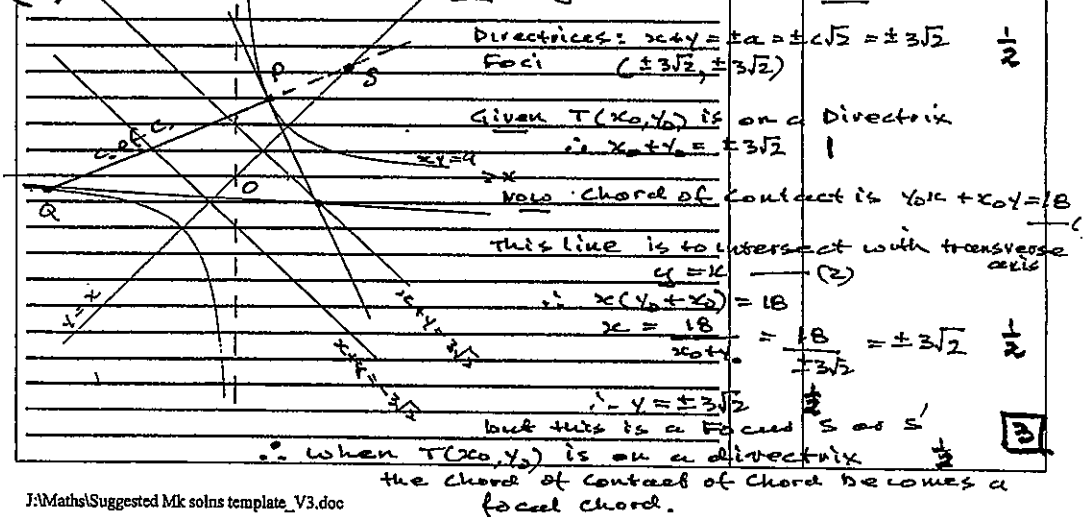 Directrices: x+y = ±a = ±c√2 = ±3√2 1/2
Foci (±3√2, ±3√2)
P
S
Given T(x₀,y₀) is on a Directrix
∴ x₀+y₀ = ±3√2 1
xy=9
x
O
Q
Now Chord of contact is y₀x + x₀y = 18
This line is to intersect with transverse axis
y = x — (2)
∴ x(y₀+x₀) = 18
x = 18/(x₀+y₀) = 18/±3√2 = ±3√2 1/2
y = x
x+y = 3√2
x+y = -3√2
∴ y = ±3√2 1/2
but this is a Focus S or S'
3
∴ when T(x₀,y₀) is on a directrix 1/2
the chord of contact of chord becomes a
focal chord.
J:\Maths\Suggested Mk solns template_V3.doc